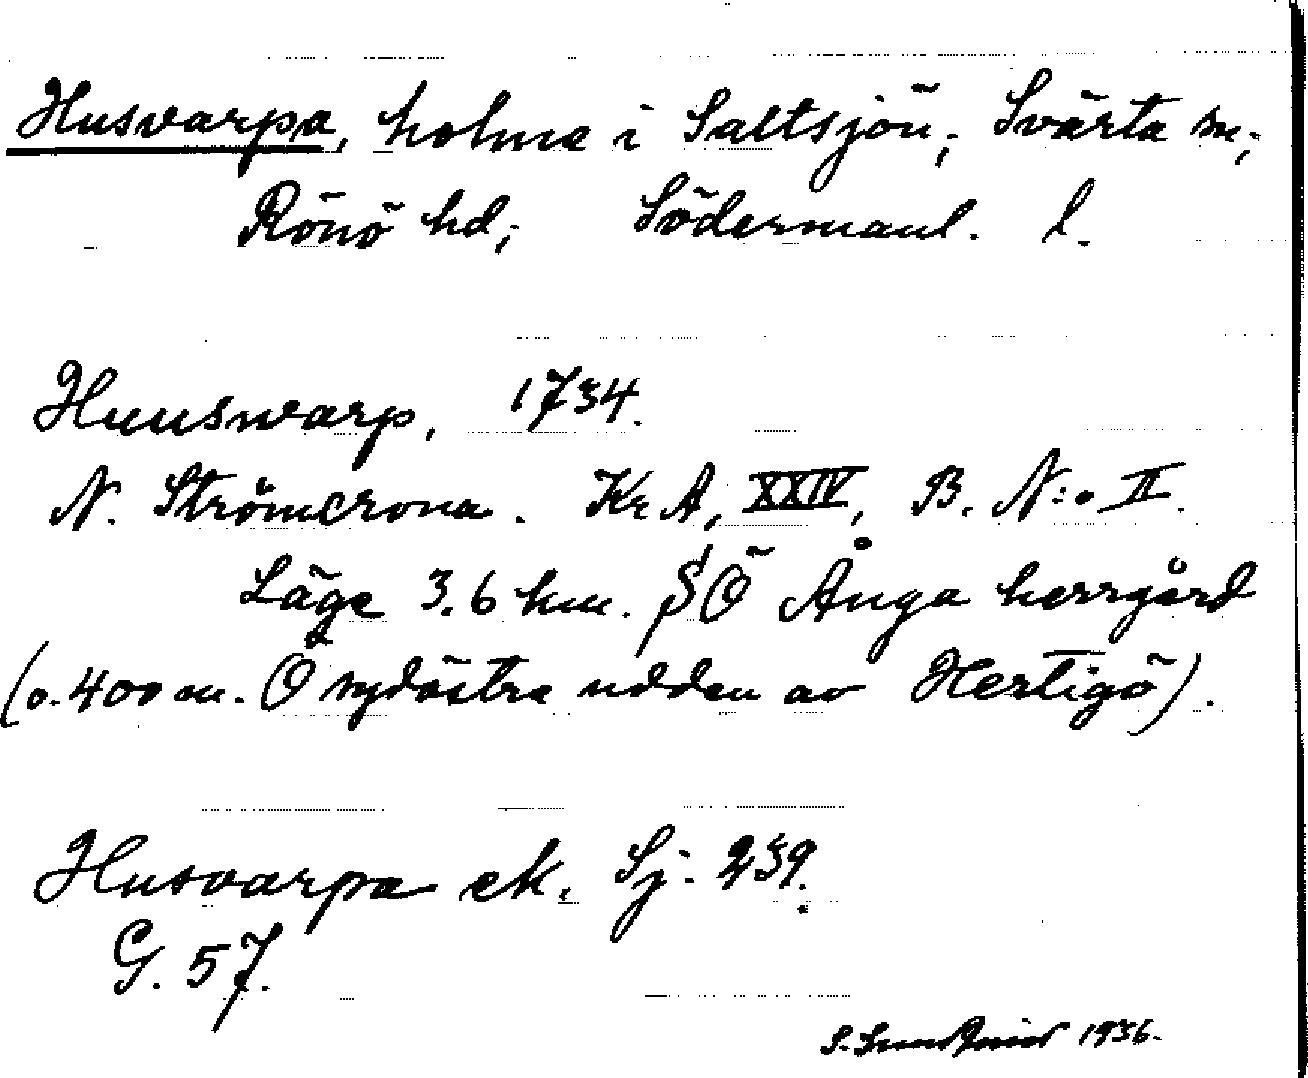 Husvarpa, holme i Saltsjön; Svärta sn;
Rönö hd; Södermanl. l.
Huuswarp, 1734.
N. Strömcrona. Kr A, XXIV, B. N:o II.
Läge 3.6 km. SÖ Ånga herrgård
(o. 400 m. Ö sydöstra udden av Hertigö).
Husvarpa ek. Sj. 239.
G. 57.
S. 1936.